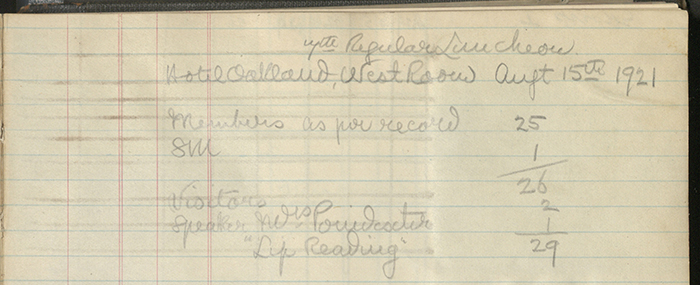 Regular Luncheon
Hotel Oakland, West Room Augt 15th 1921
Members as per record 25
SM 1
26
Visitors 2
Speaker Mrs Poindexter 1
"Lip Reading" 29